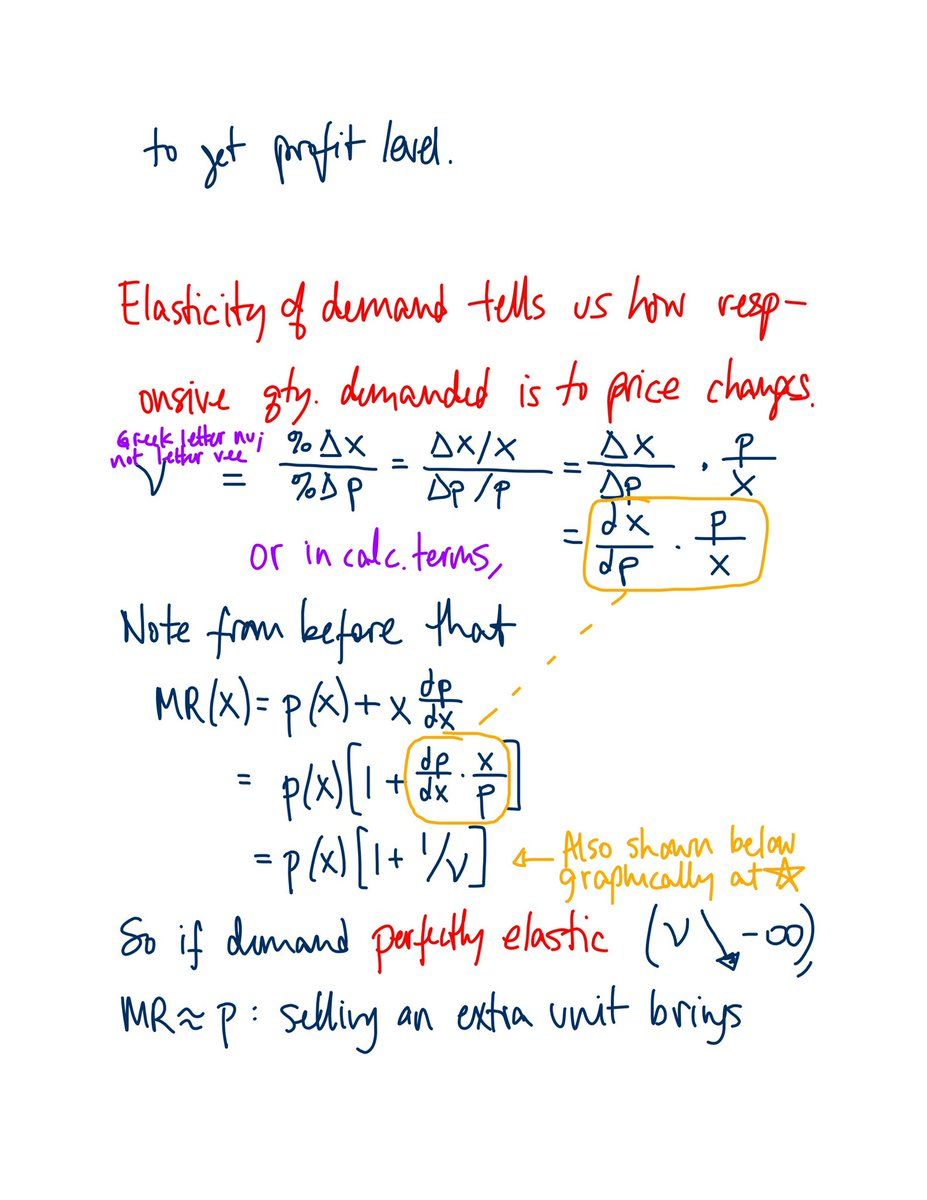 to get profit level.
Elasticity of demand tells us how resp-
onsive qty. demanded is to price changes.
Greek letter nu;
not letter vee
ν = %Δx / %Δp = Δx/x / Δp/p = Δx/Δp · p/x
or in calc. terms, = dx/dp · p/x
Note from before that
MR(x) = p(x) + x dp/dx
= p(x)[1 + dp/dx · x/p]
= p(x)[1 + 1/ν] ← Also shown below
graphically at ☆
So if demand perfectly elastic (ν ↘ -∞),
MR ≈ p : selling an extra unit brings